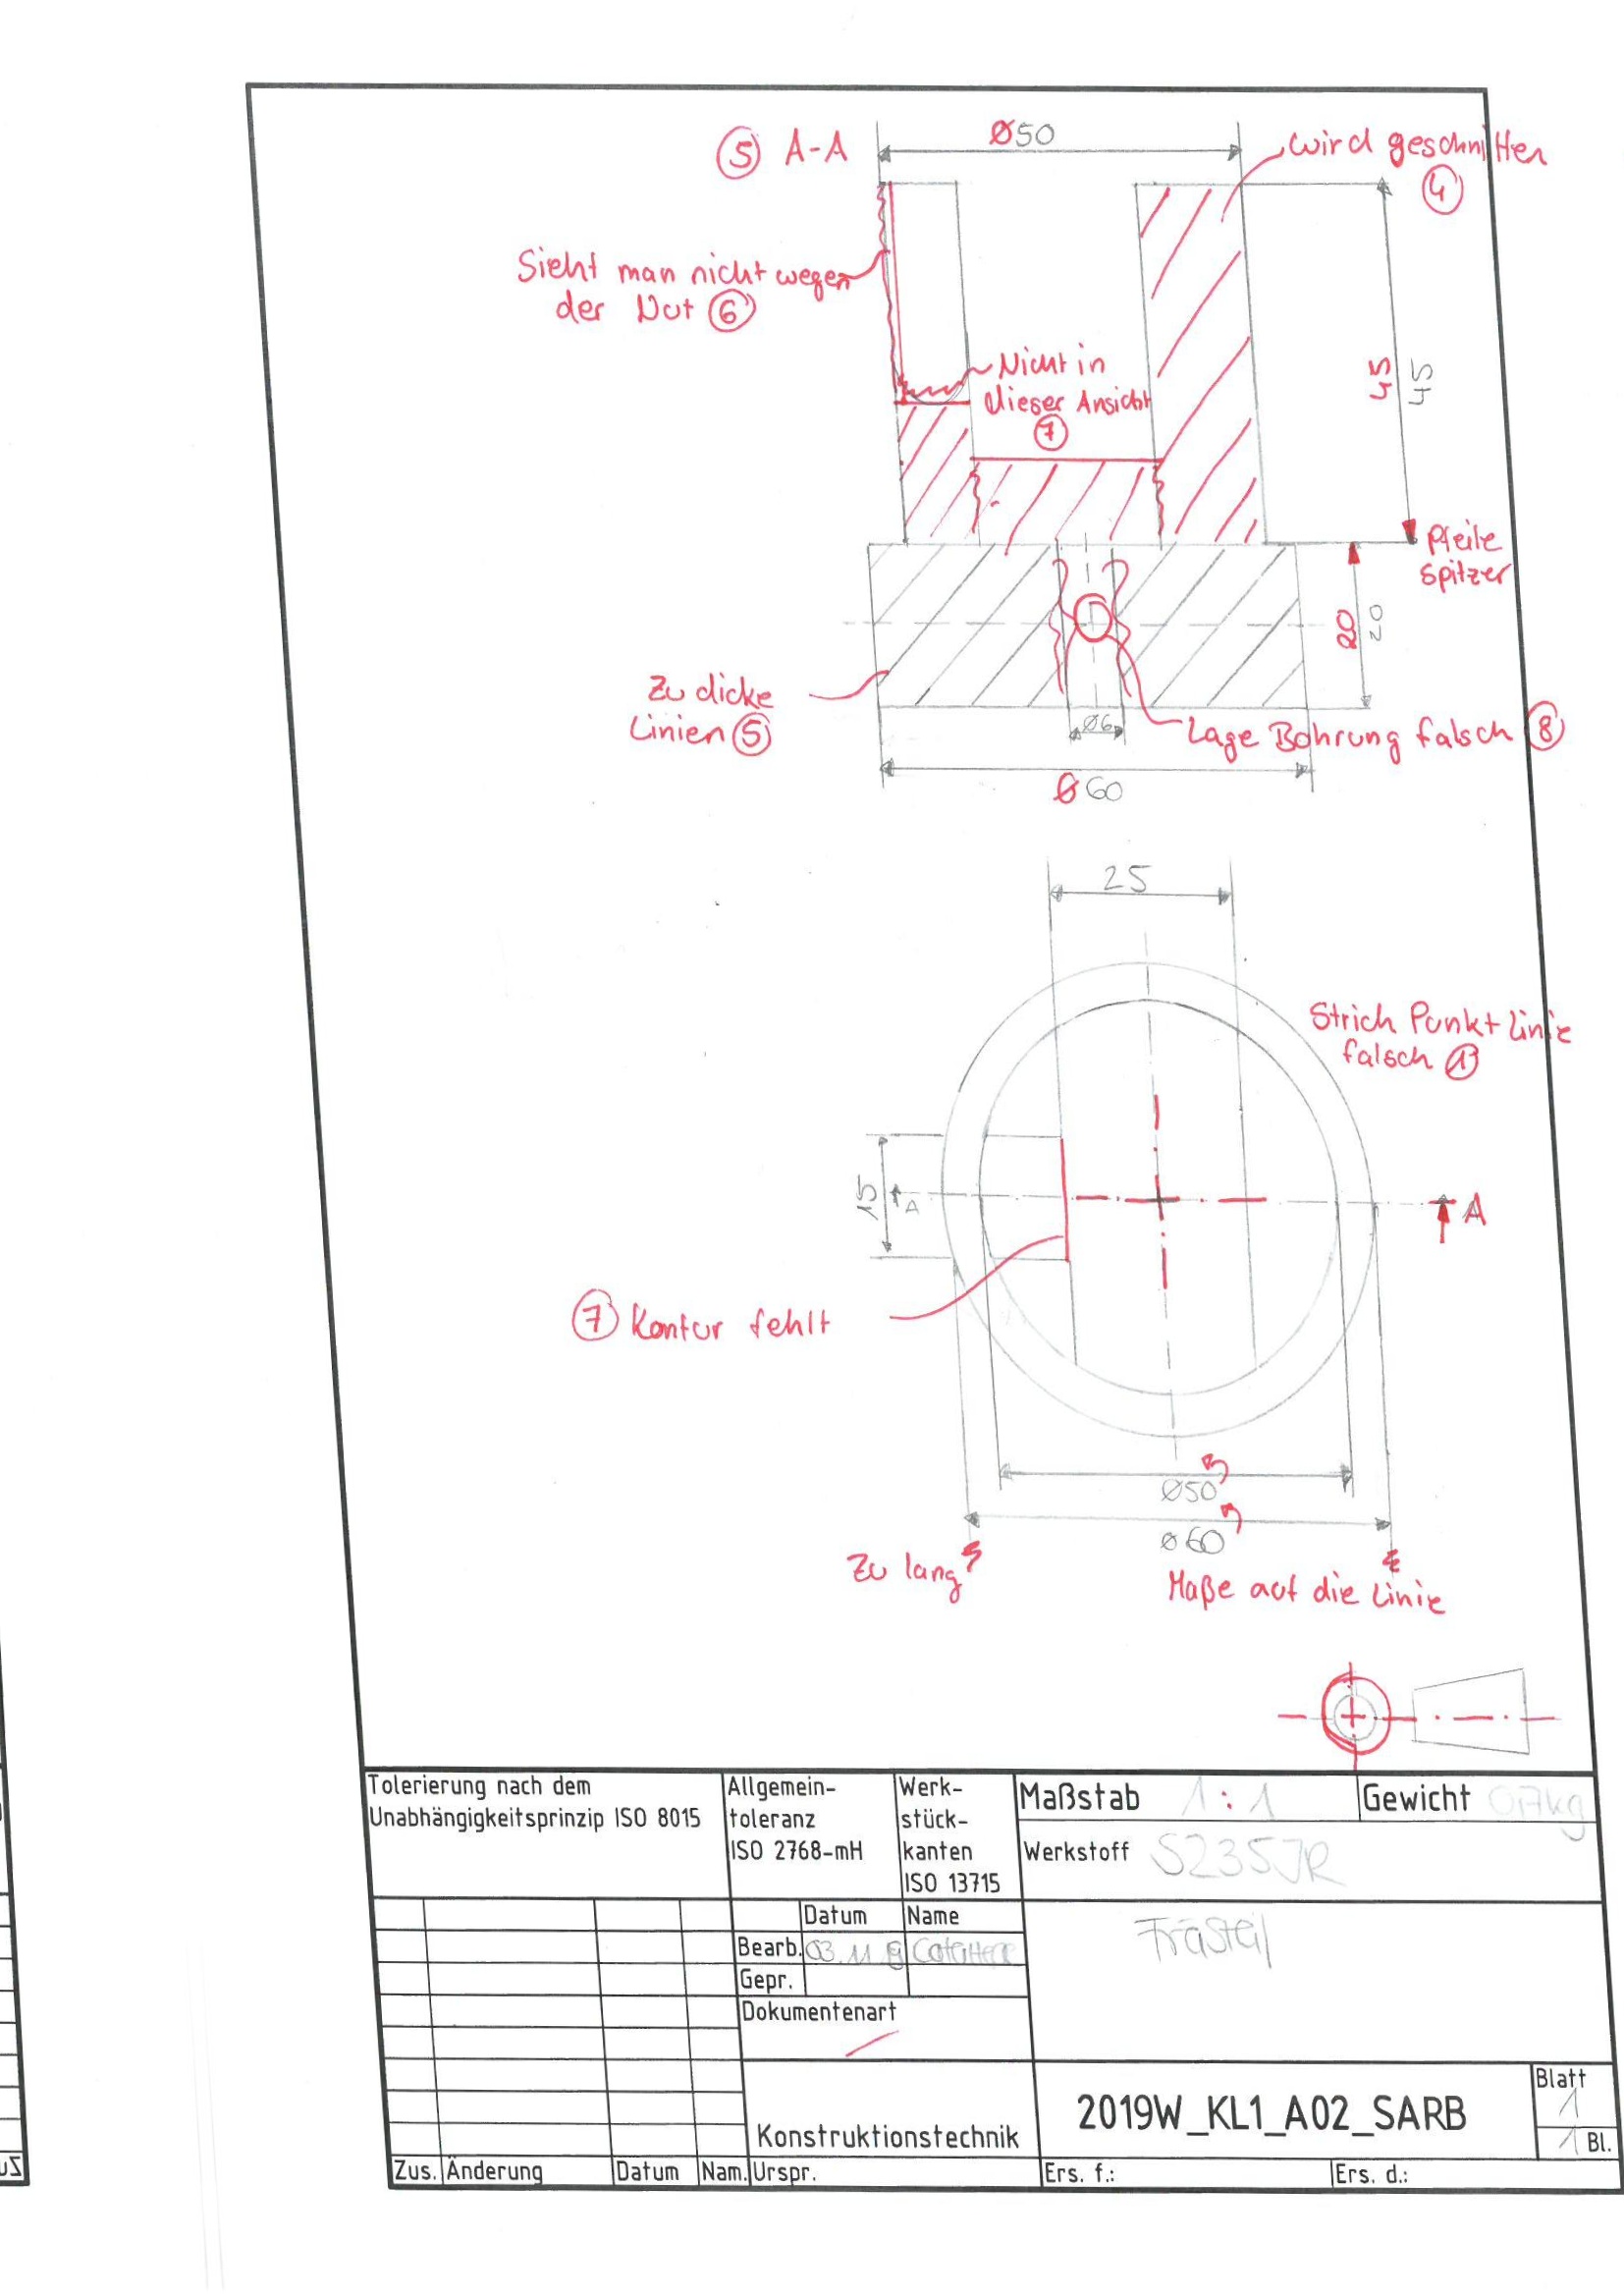 ⑤ A-A
Ø50
wird geschnitten
④
Sieht man nicht wegen
der Nut ⑥
Nicht in
dieser Ansicht
⑦
45
45
Pfeile
spitzer
20
20
Zu dicke
Linien ⑤
Ø6
Lage Bohrung falsch ⑧
Ø60
25
Strich Punkt Linie
falsch
15
A
A
⑦ Kontur fehlt
Ø50
Ø60
Zu lang
Maße auf die Linie
Tolerierung nach dem
Unabhängigkeitsprinzip ISO 8015
Allgemein-
toleranz
ISO 2768-mH
Werk-
stück-
kanten
ISO 13715
Maßstab 1:1
Gewicht 0,7kg
Werkstoff S235JR
Datum Name
Bearb. 03.11
Gepr.
Dokumentenart
Frästeil
Konstruktionstechnik
2019W_KL1_A02_SARB
Blatt
1
1 Bl.
Zus. Änderung Datum Nam. Urspr.
Ers. f.:
Ers. d.: